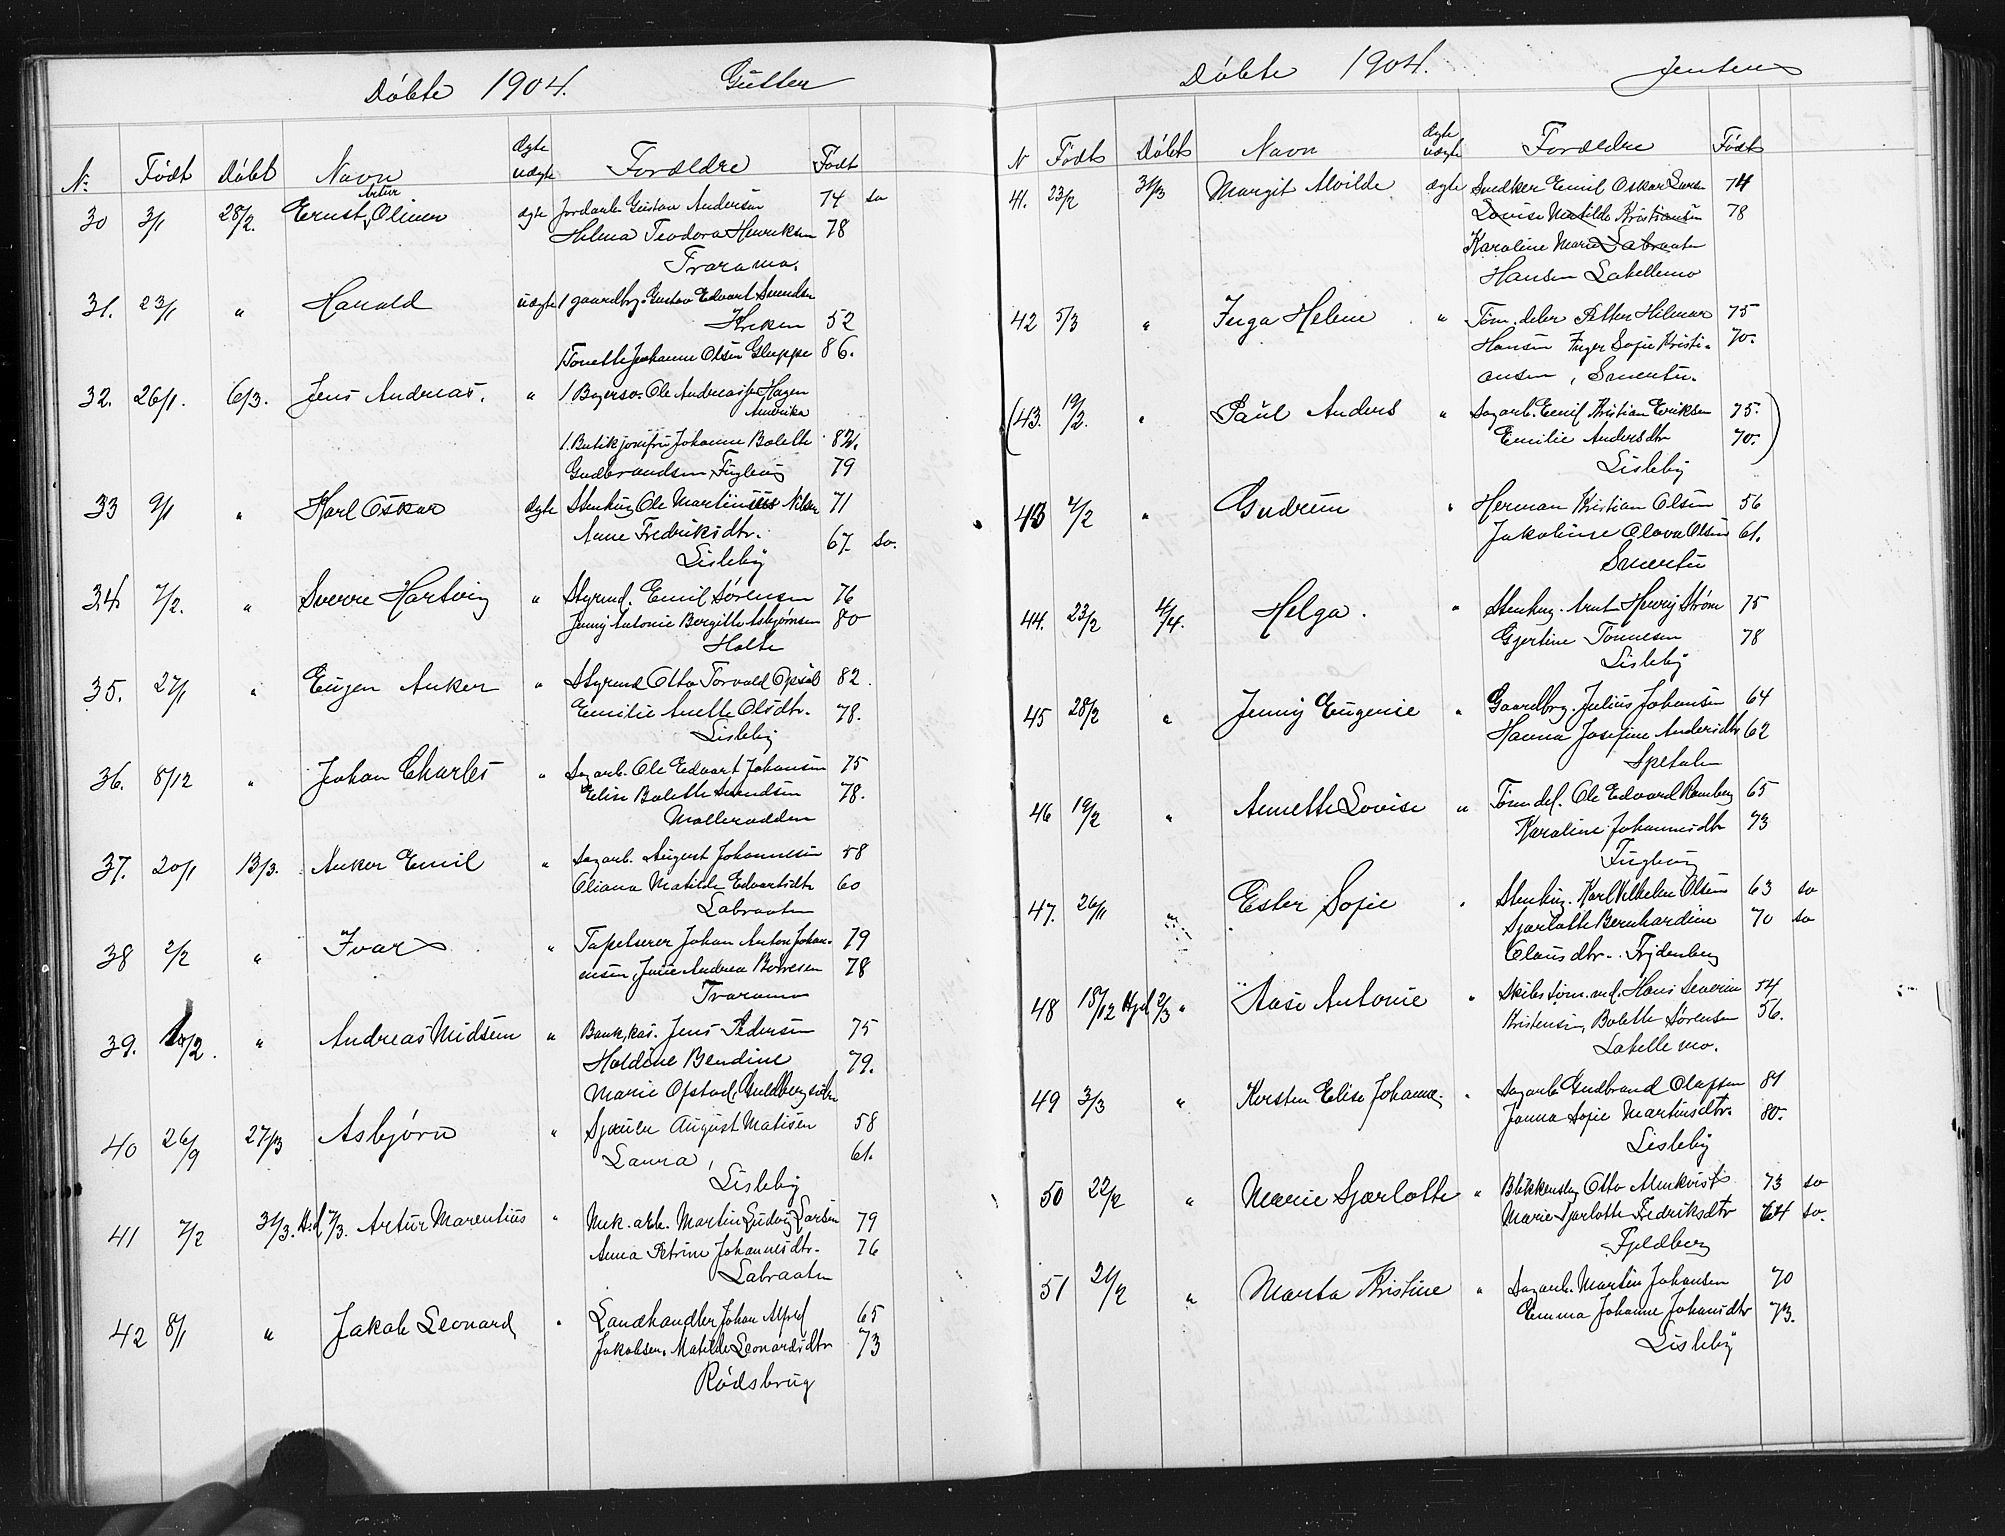 Döbte 1904. Gutter
N: Födt Döbt Navn ægte uægte Forældre Födt
30 3/1 28/2. Ernst Artur Oliver ægte Jordarb. Gustav Andersen 74 sv
Helma Teodora Henriksen 78
Traramo.
31. 23/1 " Harald uægte / gaardbrg. Gustav Edvart Svendsen
Kreken 52
/ Tonette Johanne Olsen Gluppe 86.
32. 26/1. 6/3. Jens Andreas. " / Ole Andreas Hagen
Amerika
/. Butikjomfru Johanne Bolette 82.
Gudbrandsen Fuglevig 79
33 9/1 " Karl Oskar ægte Stenhug Ole Martinius Nilsen 71
Anne Fredriksdtr. 67. sv.
Lisleby
34 7/2. " Sverre Hartvig " Styrmd. Emil Sörensen 76
Jenny Antonie Bergitte Asbjörnsen 80
Holte
35. 27/1 " Eugen Anker " Styrmd Otto Torvald Opsal 82.
Emilie Anette Olsdtr. 78.
Lisleby
36. 8/12 " Johan Charles " Sagarb. Ole Edvart Johansen 75
Elise Bolette Svendsen 78.
Mollerodden
37. 20/1 13/3. Anker Emil " Sagarb. August Johannesen 58
Oliana Matilde Edvartsdtr 60
Labraaten
38 2/2 " Ivar " Tapetserer Johan Anton Johan- 79
nesen, Julie Andrea Borresen 78
Traramo
39. 10/2. " Andreas Midsem " Bank.kas. Jens Pedersen 75
Haldine Bendine 79.
Marie Opstad, Guldbergsiden
40 26/9 27/3 Asbjörn " August Matisen 58
Laura, 61.
Lisleby
41 7/2 31/3. H.d 7/3. Artur Marentius " Mek. arb. Martin Ludvig Larsen 79
Anna Petrine Johannesdtr. 76
Labraaten
42 8/1 " Jakob Leonard " Landhandler Johan Alfred 65
Jakobsen. Matilde Leonardsdtr 73
Rödsbrug
Döbte 1904. Jenter
N Födt Döbt Navn ægte uægte Forældre Födt
41. 23/2 31/3 Margit Alvilde ægte Snedker Emil Oskar Larsen 74
Lovise Matilde Kristiansen 78
Karoline Marie Labraaten
Hansen Labellemo
42 5/3 " Inga Helene " Töm.deler Petter Hilmar 75
Hansen Inger Sofie Kristi- 70.
ansen, Smertu.
(43. 19/2. " Paul Anders " Sagarb. Emil Kristian Eriksen 75.)
Emilie Andersdtr 70.
Lisleby
43 7/2 " Gudrun " Herman Kristian Olsen 56
Jakobine Olava Olsen 61.
Smertu
44. 23/2 4/4. Helga. " Stenhug. Arnt Henry Ström 75
Gjertine Tönnesen 78
Lisleby
45 28/2 " Jenny Eugenie " Gaardbrg. Julius Johansen 64
Hanna Josefine Andersdtr 62
Spetalen
46 19/2 " Annette Lovise " Tömdel. Ole Edvard Ramberg 65
Karoline Johannesdtr 73
Fuglevig
47. 26/1 " Ester Sofie " Stenhug. Karl Vilhelm Olsen 63 sv
Sjarlotte Bernhardine 70 sv
Clausdtr. Frydenberg
48 18/12 Hjd 2/3 " Aase Antonie " Skibstöm.md. Hans Severin 54
Kristensen, Bolette Sörensen 56.
Labellemo.
49 3/3 " Kirsten Elise Johanne. " Sagarb. Gudbrand Olafsen 81
Janna Sofie Martinsdtr. 80.
Lisleby
50 22/2 " Marie Sjarlotte " Blikkenslg Otto Almkvist 73 sv
Marie Sjarlotte Fredriksdtr 64 sv.
Fjeldberg
51 21/2 " Marta Kristine " Sagarb. Martin Johansen 70
Emma Johanne Johansdtr 73.
Lisleby